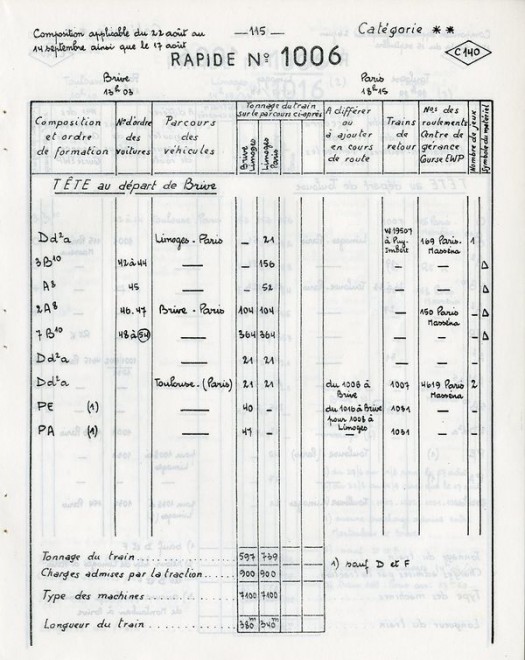 Composition applicable du 22 août au
14 septembre ainsi que le 17 août
— 115 —
Catégorie * *
RAPIDE N° 1006
C 140
Brive
13h 03
Paris
18h 15
Composition et ordre de formation
Nos d'ordre des voitures
Parcours des véhicules
Tonnage du train sur le parcours ci-après
Brive Limoges
Limoges Paris
A différer ou à ajouter en cours de route
Trains de retour
Nos des roulements Centre de gérance
Nombre de feux
Symbole du matériel
TÊTE au départ de Brive
Dd²a Limoges - Paris — 21 W 19507 à Puy-Imbert 169 Paris-Masséna 1
3B10 42 à 44 — — 156 Δ
A8 45 — — 52 — Δ
2A8 46.47 Brive - Paris 104 104 150 Paris Masséna — Δ
7B10 48 à 54 — 364 364 — — Δ
Dd²a — 21 21 —
Dd²a Toulouse - (Paris) 21 21 du 1006 à Brive 1007 4619 Paris Masséna 2
PE (1) — 40 — du 1016 à Brive pour 1006 à Limoges 1051 —
PA (1) — 47 — — 1051 —
Tonnage du train 597 739
1) sauf D et F
Charges admises par la traction 900 900
Type des machines 7100 7100
Longueur du train 380m 340m